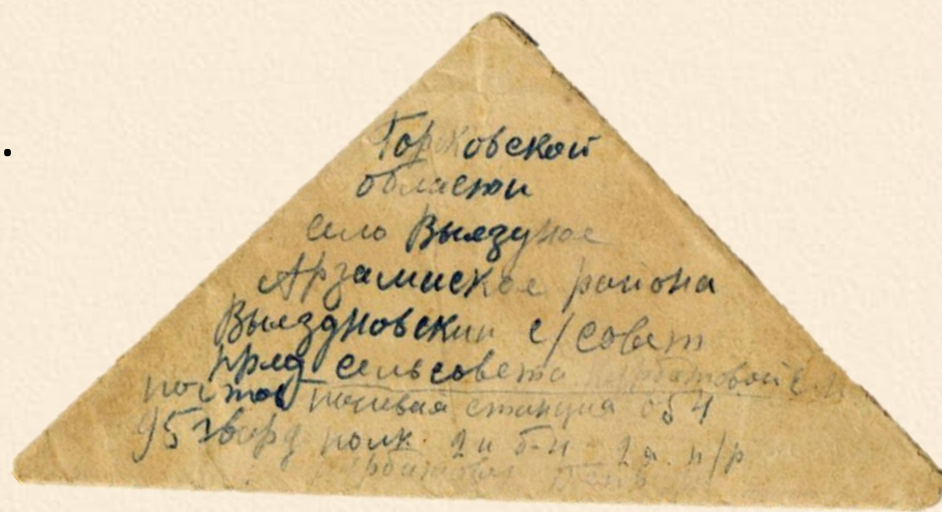 Горьковской
области
село Выездное
Арзамаское района
Выездновский с/совет
пред сельсовета Курбатовой Е М
почтов полевая станция 054
95 гвард полк 2й б-н 2я п/р
Курбатов